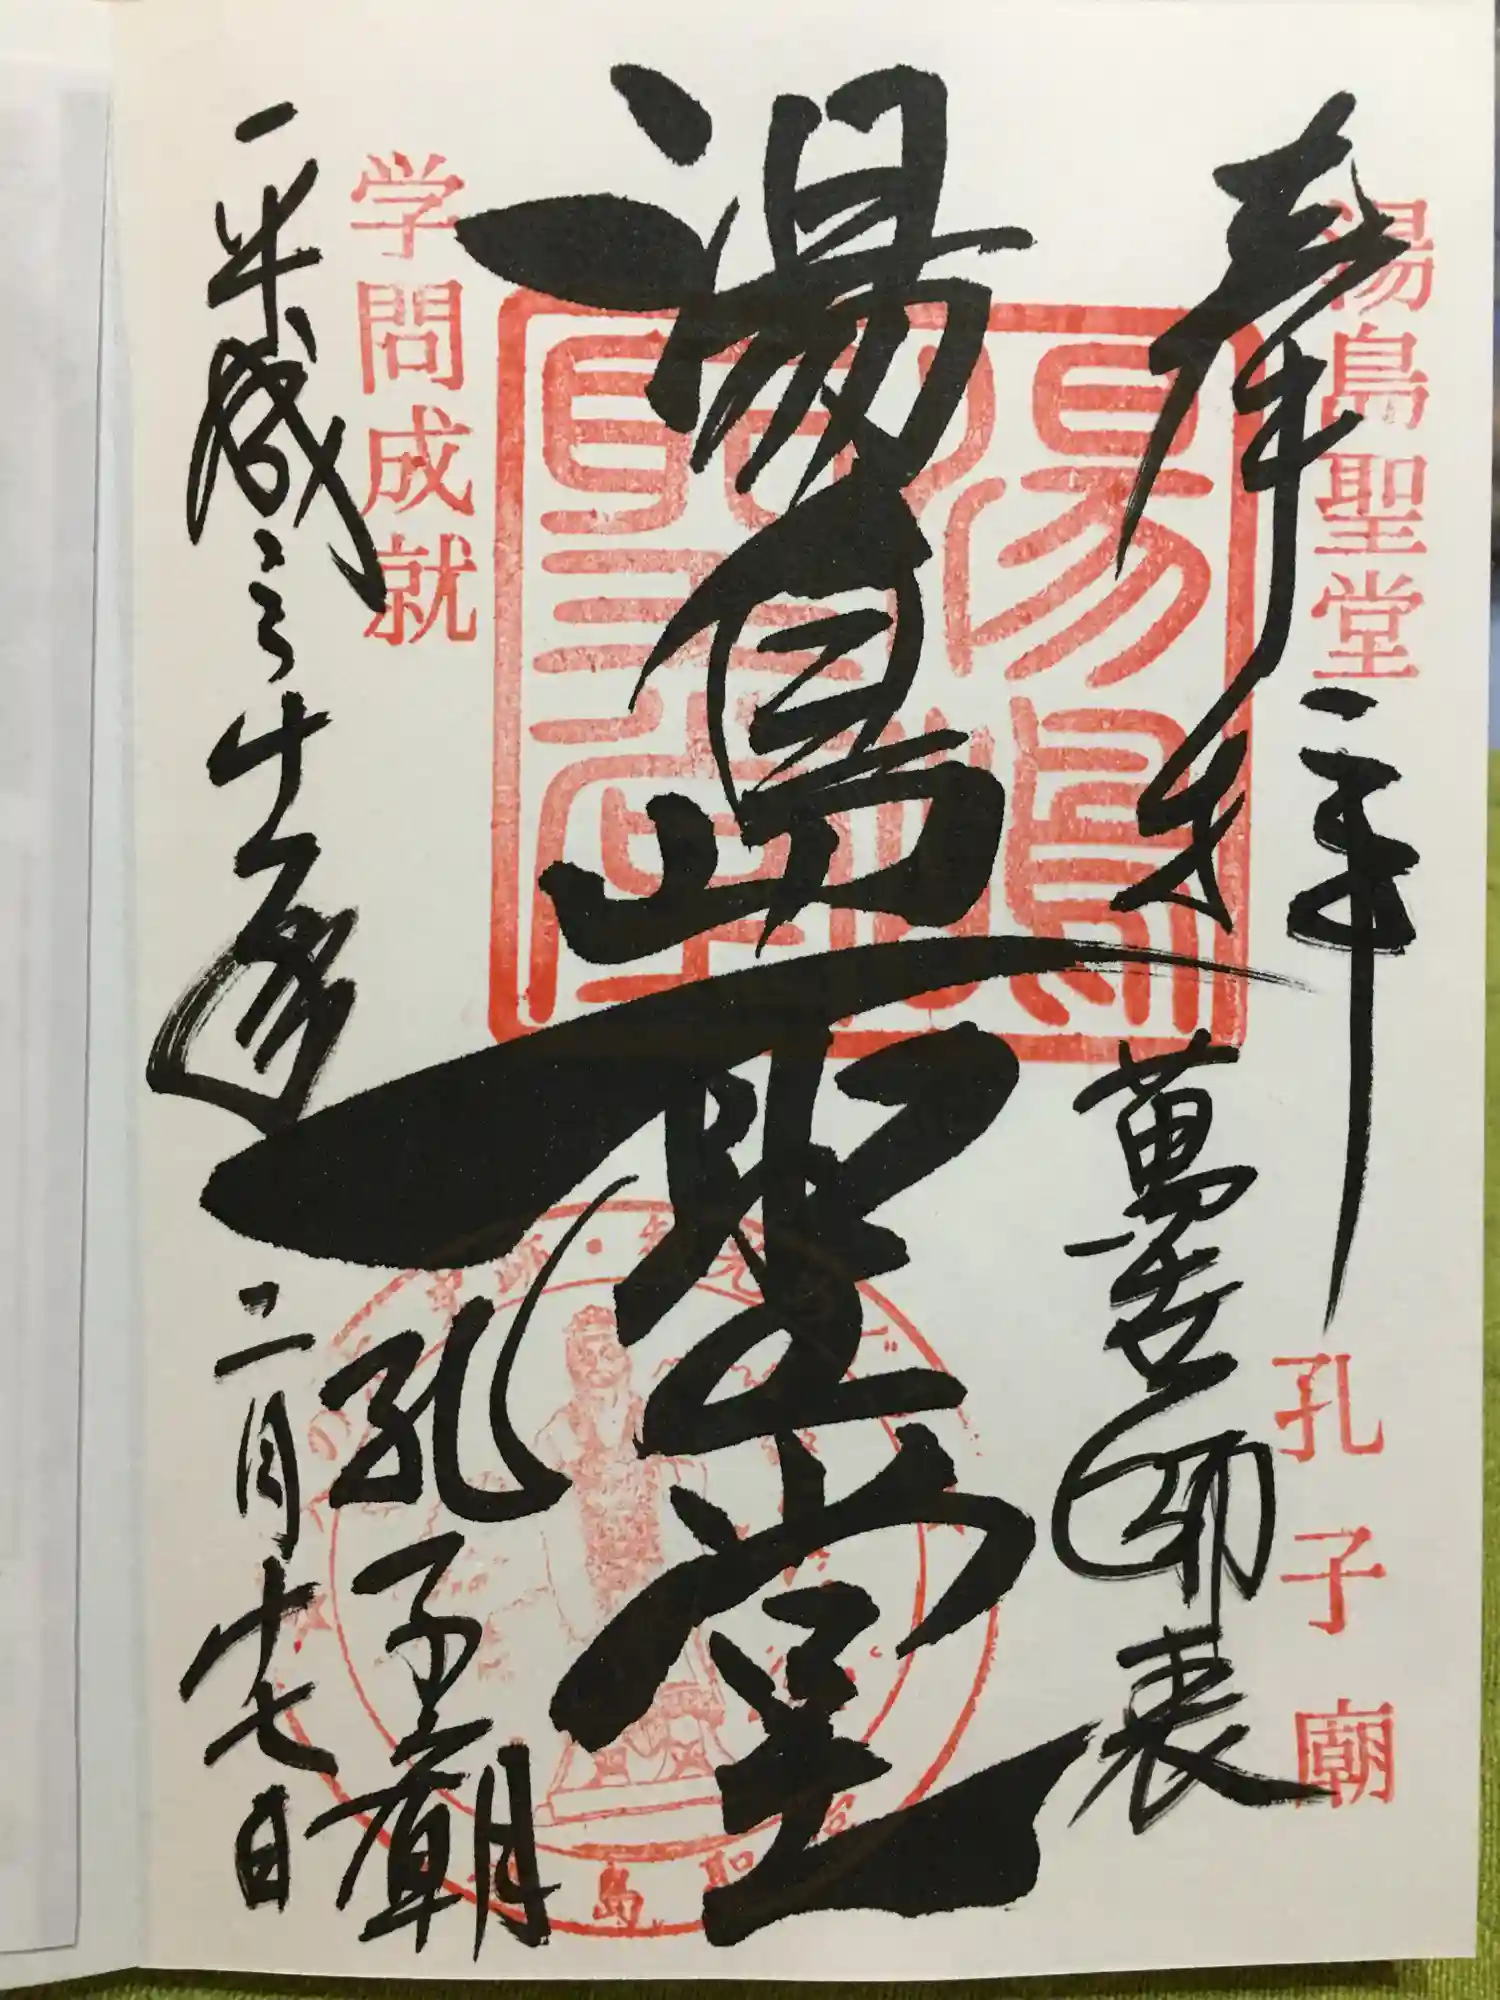 湯島聖堂
孔子廟
奉拝
萬世師表
湯島聖堂
湯島聖堂
孔子廟
学問成就
平成三十年二月十七日